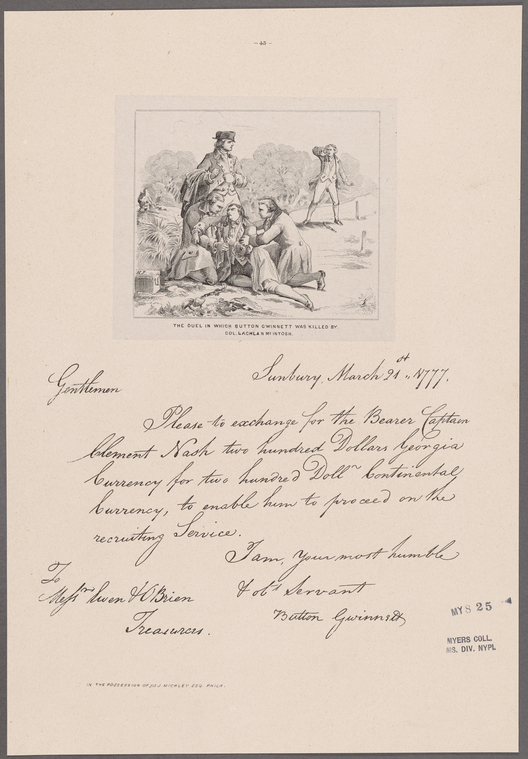 - 43 -
THE DUEL IN WHICH BUTTON GWINNETT WAS KILLED BY
COL. LACHLAN McINTOSH.
Sunbury, March 21st, 1777.
Gentlemen
Please to exchange for the Bearer Captain
Clement Nash two hundred Dollars Georgia
Currency for two hundred Dollrs Continental
Currency, to enable him to proceed on the
recruiting Service.
I am, Your most humble
& obt Servant
Button Gwinnett
To
Messrs Ewen & O'Brien
Treasurers.
MYS 25
MYERS COLL.
MS. DIV. NYPL
IN THE POSSESSION OF JOS. J. MICKLEY ESQ. PHILA.